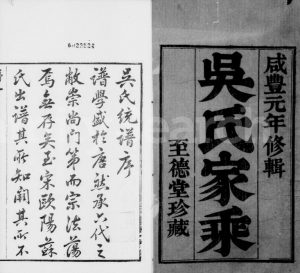 咸豐元年修輯
吳氏家乘
至德堂珍藏
吳氏統譜序
譜學盛於唐然承六代之
敝崇尚門第而宗法蕩
焉無存矣至宋歐陽蘇
氏出譜其所知闕其所不